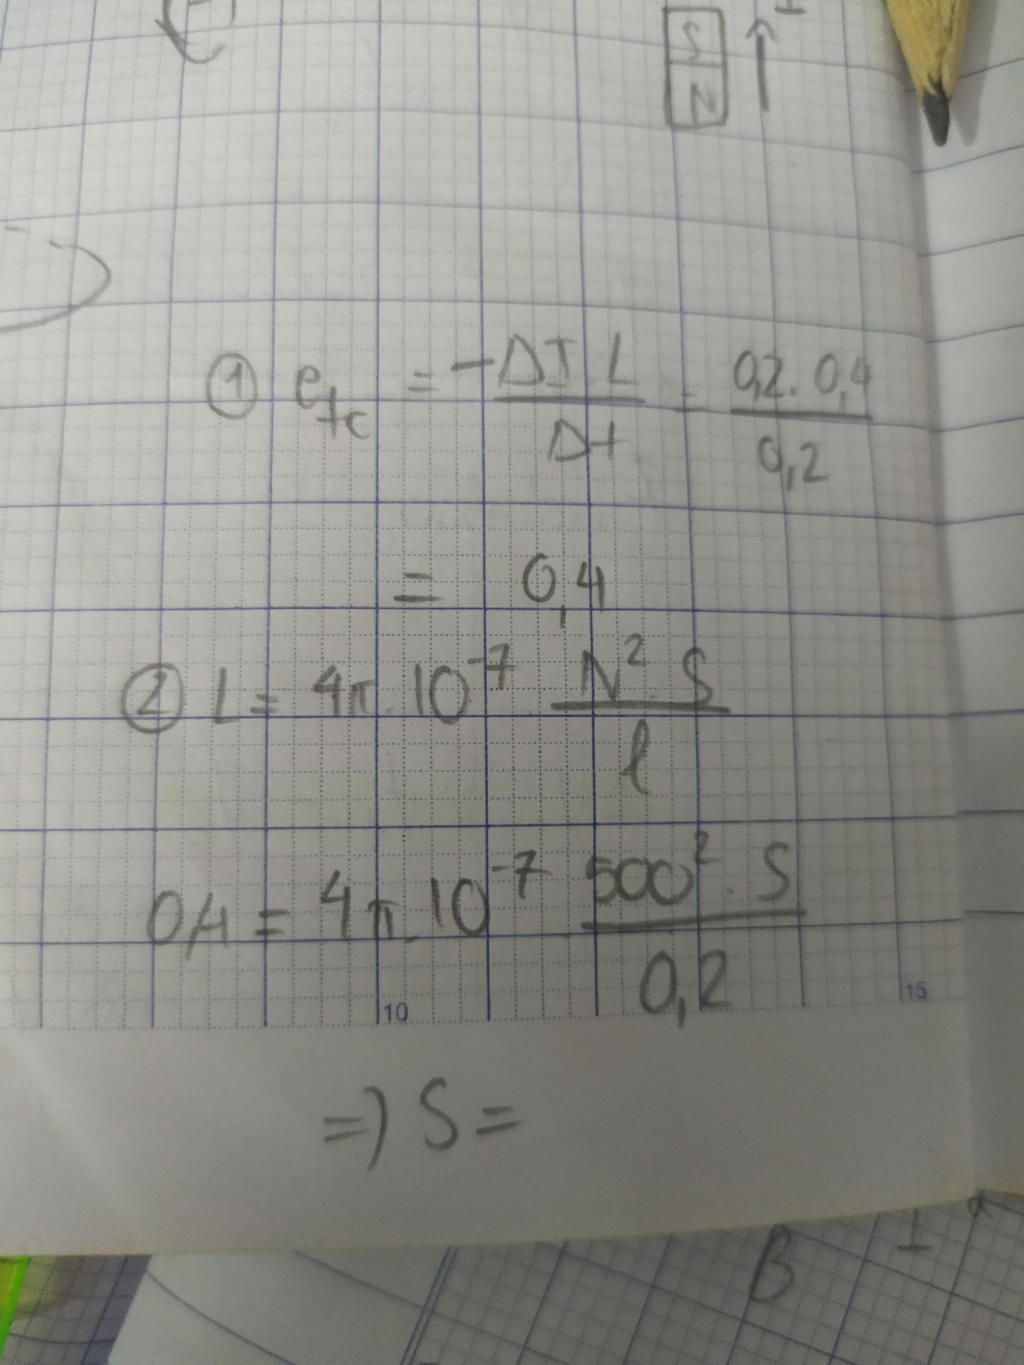 S N
① e_tc = -ΔI.L / Δt = 0,2.0,4 / 0,2
= 0,4
② L = 4π.10^-7 N².S / l
0,4 = 4π.10^-7 500².S / 0,2
10
15
=> S =
B I